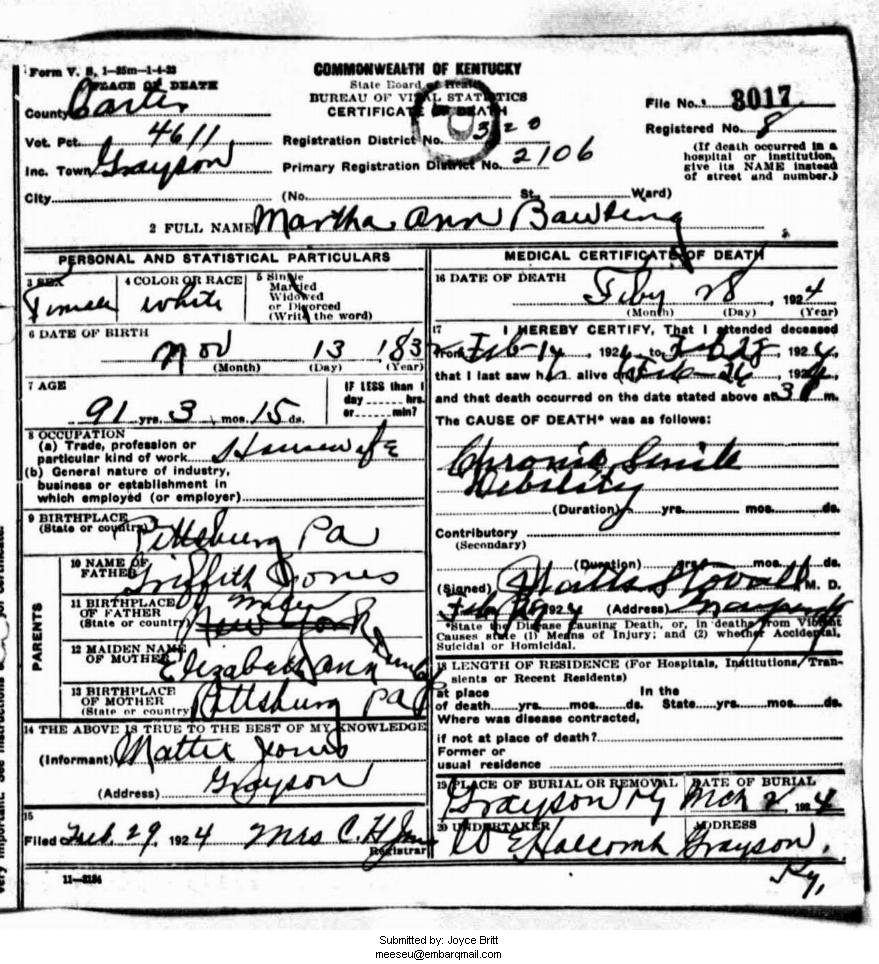 Form V. S. 1-25m-1-4-23
PLACE OF DEATH
County Carter
Vot. Pct. 4611
Inc. Town Grayson
City
COMMONWEALTH OF KENTUCKY
State Board of Health
BUREAU OF VITAL STATISTICS
CERTIFICATE OF DEATH
Registration District No. 320
Primary Registration District No. 2106
(No. St. Ward)
File No. 3017
Registered No. 8
(If death occurred in a
hospital or institution,
give its NAME instead
of street and number.)
2 FULL NAME Martha Ann
PERSONAL AND STATISTICAL PARTICULARS
3 SEX Female
4 COLOR OR RACE White
5 Single
Married
Widowed
or Divorced
(Write the word)
6 DATE OF BIRTH
Nov 13 183
(Month) (Day) (Year)
7 AGE
91 yrs. 3 mos. 15 ds.
IF LESS than 1
day hrs.
or min?
8 OCCUPATION
(a) Trade, profession or
particular kind of work Housewife
(b) General nature of industry,
business or establishment in
which employed (or employer)
9 BIRTHPLACE
(State or country) Pittsburg Pa
PARENTS
10 NAME OF
FATHER Griffith Jones
11 BIRTHPLACE
OF FATHER
(State or country) New York
12 MAIDEN NAME
OF MOTHER Elizabeth Ann
13 BIRTHPLACE
OF MOTHER
(State or country) Pittsburg Pa
14 THE ABOVE IS TRUE TO THE BEST OF MY KNOWLEDGE
(Informant) Mattie Jones
(Address) Grayson
15
Filed Feb. 29, 1924 Mrs C. H.
Registrar
11-3184
MEDICAL CERTIFICATE OF DEATH
16 DATE OF DEATH
Feby 28, 1924
(Month) (Day) (Year)
17 I HEREBY CERTIFY, That I attended deceased
from Feb 14, 1924, to Feb 28, 1924,
that I last saw h alive on Feb 26, 1924,
and that death occurred on the date stated above at 3 m.
The CAUSE OF DEATH* was as follows:
Chronic Senile
Debility
(Duration) yrs. mos. ds.
Contributory
(Secondary)
(Duration) yrs. mos. ds.
(Signed) Stovall M. D.
Feb 29, 192 (Address)
*State the Disease Causing Death, or, in deaths from Violent
Causes state (1) Means of Injury; and (2) whether Accidental,
Suicidal or Homicidal.
18 LENGTH OF RESIDENCE (For Hospitals, Institutions, Tran-
sients or Recent Residents)
at place In the
of death yrs. mos. ds. State yrs. mos. ds.
Where was disease contracted,
if not at place of death?
Former or
usual residence
19 PLACE OF BURIAL OR REMOVAL DATE OF BURIAL
Grayson Ky Mch 2, 1924
20 UNDERTAKER ADDRESS
W E Holcomb Grayson,
Ky,
Submitted by: Joyce Britt
meeseu@embarqmail.com